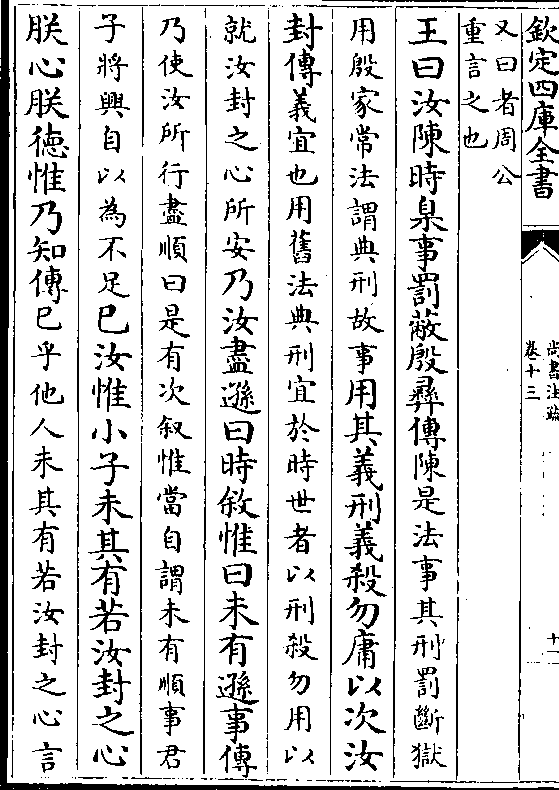 欽定四庫全書
尚書注疏
卷十三
又曰者周公
重言之也
王曰汝陳時臬事罰蔽殷彝傳陳是法事其刑罰斷獄
用殷家常法謂典刑故事用其義刑義殺勿庸以次汝
封傳義宜也用舊法典刑宜於時世者以刑殺勿用以
就汝封之心所安乃汝盡遜曰時敘惟曰未有遜事傳
乃使汝所行盡順曰是有次叙惟當自謂未有順事君
子將興自以為不足已汝惟小子未其有若汝封之心
朕心朕德惟乃知傳已乎他人未其有若汝封之心言